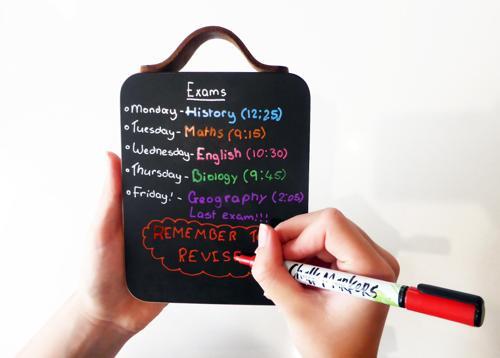 Exams
Monday - History (12:25)
Tuesday - Maths (9:15)
Wednesday - English (10:30)
Thursday - Biology (9:45)
Friday! - Geography (2:05)
Last exam!!!
REMEMBER T
REVIS
Chalk Markers